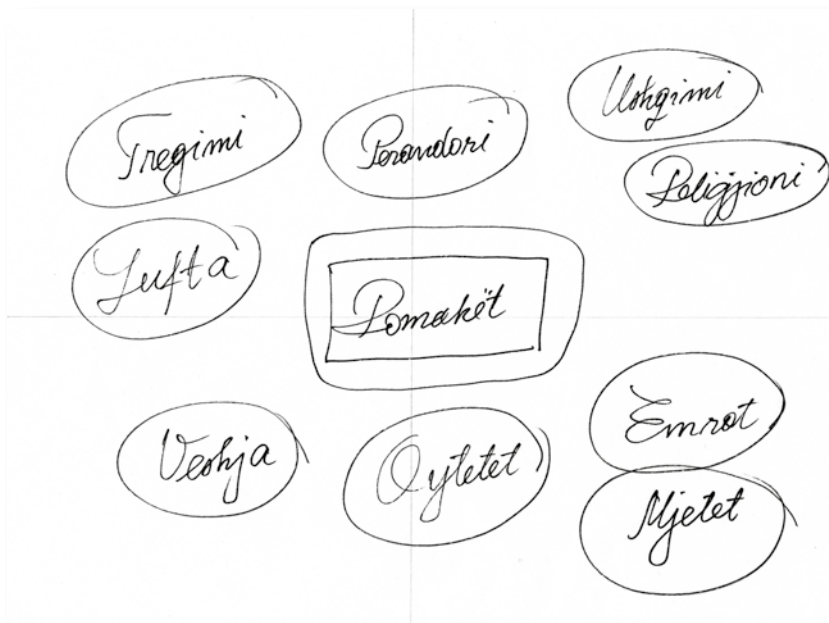 Tregimi
Perandori
Ushqimi
Religjioni
Lufta
Romakët
Veshja
Qytetet
Emrat
Mjetet